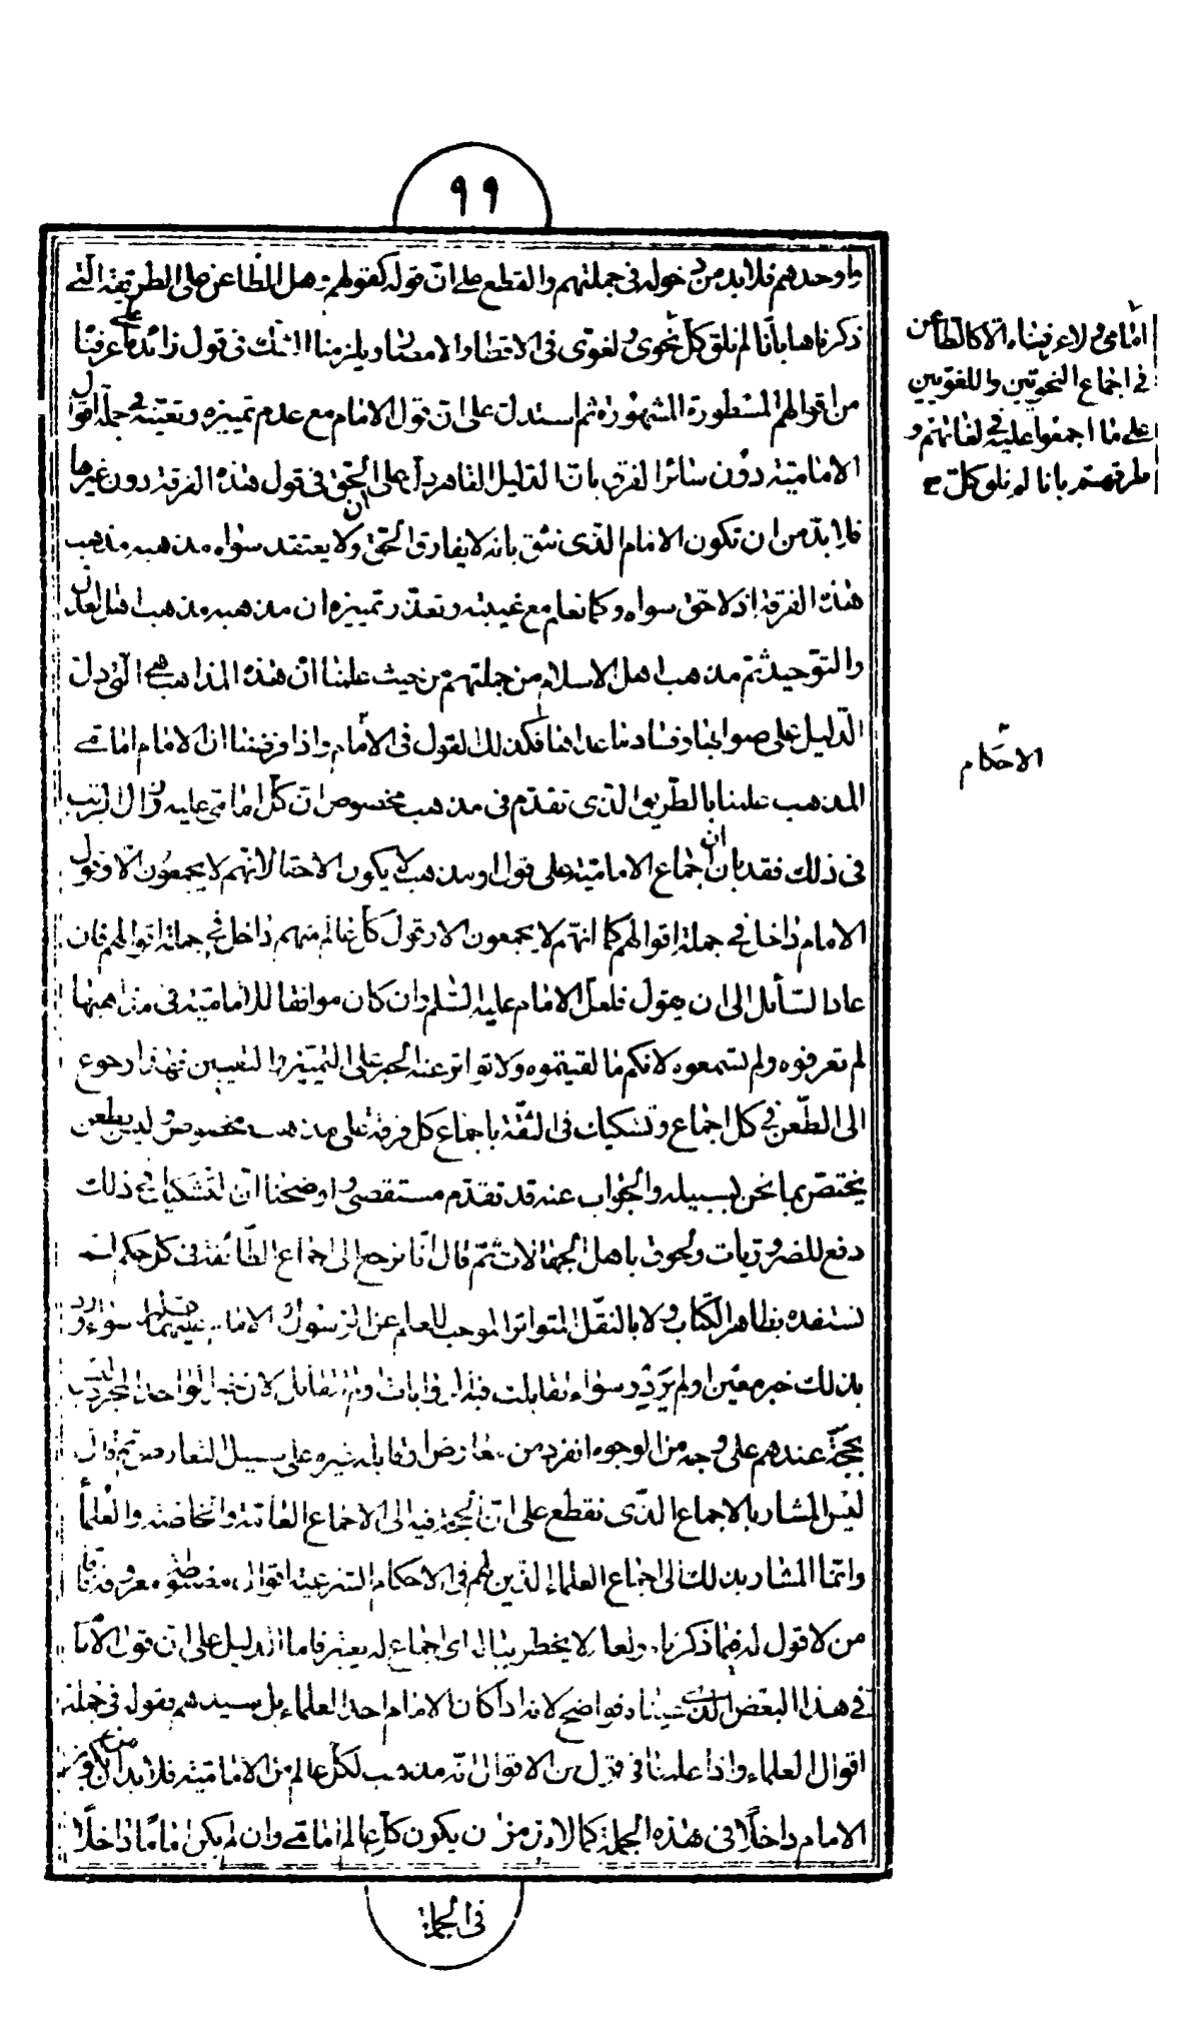 ٩٩
واوحدهم فلابد من دخوله فى جملتهم والقطع على ان قوله كقولهم هل الطاعن على الطريقة التى
ذكرناها بأنا لم نلق كل نحوى ولغوى فى الاقطار والامصار ويلزمنا الشك فى قول زائد على ما عرفنا
من اقوالهم المسطورة المشهورة ثم استدل على ان قول الامام مع عدم تمييزه وتعينه فى جملة اقوال
الامامية دون سائر الفرق بان الدليل القاهر دل على ان الحق فى قول هذه الفرقة دون غيرها
فلابد من ان تكون الامام الذى نثق بانه لا يفارق الحق ولا يعتقد سواه مذهبه مذهب
هذه الفرقة اذ لا حق سواه وكما نعلم مع غيبته وتعذر تمييزه ان مذهبه مذهب اهل العدل
والتوحيد ثم مذهب اهل الاسلام من جملتهم من حيث علمنا ان هذه المذاهب هى التى دل
الدليل على صوابها وفساد ما عداها فكذلك القول فى الامام واذا فرضنا ان الامام امامى
المذهب علمنا بالطريق الذى تقدم فى مذهب مخصوص ان كل امامى عليه وزال الريب
فى ذلك فقد بان ان اجماع الامامية على قول او مذهب لا يكون الا حقا لانهم لا يجمعون الا وقول
الامام داخل فى جملة اقوالهم كما انهم لا يجمعون الا وقول كل عالم منهم داخل فى جملة اقوالهم فان
عاد السائل الى ان يقول فلعل الامام عليه السلم وان كان موافقا للامامية فى مذاهبها
لم تعرفوه ولم تسمعوه لانكم ما لقيتموه ولا تواتر عنه الخبر على التمييز والتعيين فهذا رجوع
الى الطعن فى كل اجماع وتشكيك فى الثقة باجماع كل فرقة على مذهب مخصوص وليس بطعن
يختص بما نحن بسبيله والجواب عنه قد تقدم مستقصى واوضحنا ان التشكيك فى ذلك
دفع للضروريات ولحوق باهل الجهالات ثم قال انا نرجع الى اجماع الطائفة فى كل حكم لم
نستفده بظاهر الكتاب ولا بالنقل المتواتر الموجب للعلم عن الرسول او الامام عليهما السلم سواء ورد
بذلك خبر معين او لم يرد وسواء تقابلت فيه الروايات ولم تتقابل لان خبر الواحد المجرد ليس
بحجة عندهم على وجه من الوجوه انفرد من معارض او قابله غيره على سبيل التعارض ثم قال
ليس المشار بالاجماع الذى نقطع على ان الحجة فيه الى الاجماع العامة والخاصة والعلماء
وانما المشار بذلك الى اجماع العلماء الذين لهم فى الاحكام الشرعية اقوال مضبوطة معروفة فاما
من لا قول له فيما ذكرناه ولعله لا يخطر ببال اى اجماع له يعتبر فاما الدليل على ان قول الامام
فى هذا البعض الذى عيناه فواضح لانه اذا كان الامام احد العلماء بل سيدهم يقول فى جملة
اقوال العلماء واذا علمنا فى قول من الاقوال انه مذهب لكل عالم من الامامية فلابد من ان يكون
الامام داخلا فى هذه الجملة كما لابد من ان يكون كل عالم امامى وان لم يكن اماما داخلا
فى الجملة
امامى ولا عرفناه الا كالطاعن
فى اجماع النحويين واللغويين
على ما اجمعوا عليه فى لغاتهم و
طرقهم بانا لم نلق كل
الاحكام